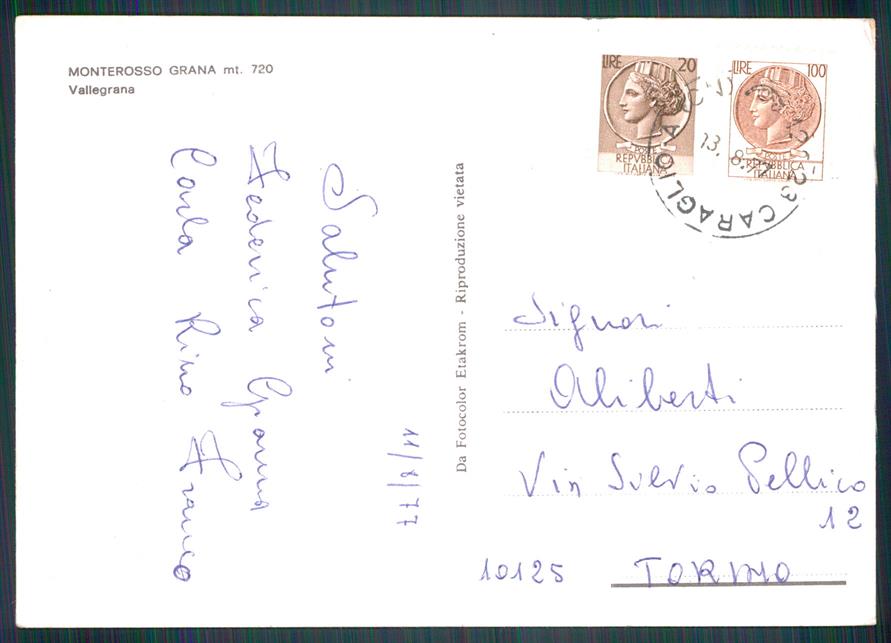 MONTEROSSO GRANA mt. 720
Vallegrana
Salutoni
Federica Gianna
Carla Rino Franco
11/8/77
Da Fotocolor Etakrom - Riproduzione vietata
LIRE 20
POSTE
REPVBBLICA
ITALIANA
LIRE 100
POSTE
REPVBBLICA
ITALIANA
CARAGLIO
13.8.77
Signori
Aliberti
Via Silvio Pellico
12
10125 TORINO